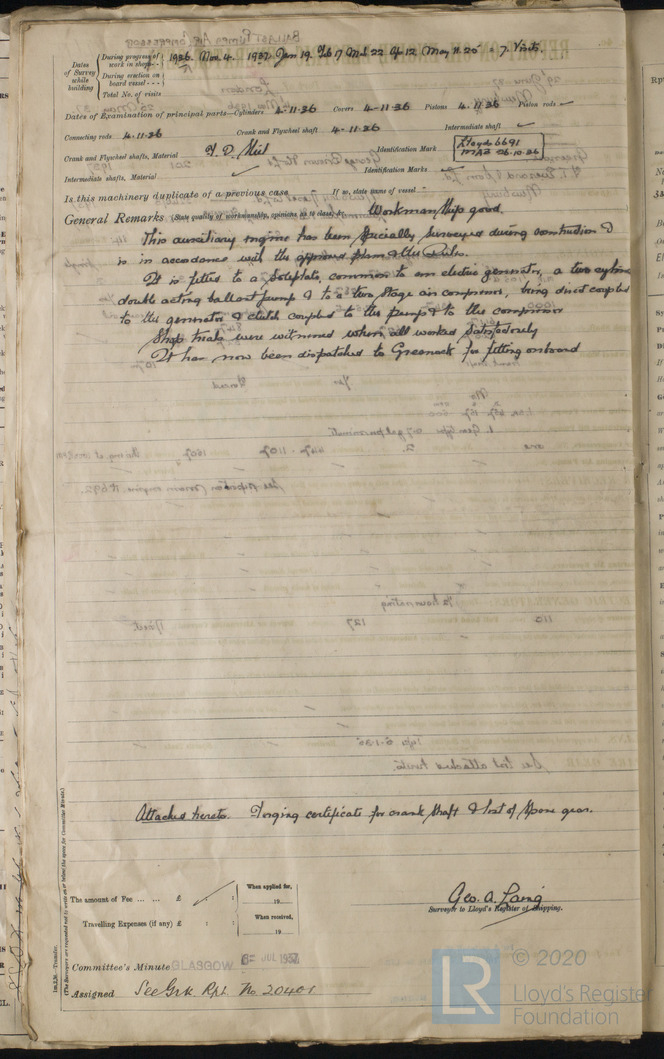 Dates of Survey while building
During progress of work in shops 1936. Nov. 4. 1937. Jan 19. Feb 17 Mch 22 Ap 12 May 11. 20 = 7 Visits.
During erection on board vessel
Total No. of visits
Dates of Examination of principal parts—Cylinders 4-11-36 Covers 4-11-36 Pistons 4-11-36 Piston rods
Connecting rods 4-11-36 Crank and Flywheel shaft 4-11-36 Intermediate shaft
Crank and Flywheel shafts, Material Identification Mark Lloyds 6691
26-10-36
Intermediate shafts, Material Identification Marks
Is this machinery duplicate of a previous case If so, state name of vessel
General Remarks (State quality of workmanship, opinions as to class, &c. Workmanship good.
This auxiliary engine has been specially surveyed during construction &
is in accordance with the approved plan & the Rules.
It is fitted to a bedplate, common to an electric generator, a two cylinder
double acting ballast pump & to a two stage air compressor, being direct coupled
to the generator & clutch coupled to the pump & to the compressor
Shop trials were witnessed when all worked satisfactorily
It has now been dispatched to Greenock for fitting onboard
Attached hereto. Forging certificate for crank shaft & list of spare gear.
The amount of Fee ... ... £ : :
When applied for,
19
Travelling Expenses (if any) £ : :
When received,
19
Geo. A. Laing
Surveyor to Lloyd's Register of Shipping.
Committee's Minute GLASGOW 6 JUL 1937
Assigned See Grk. Rpt. No. 20401
(The Surveyors are requested not to write on or below the space for Committee Minute.)
© 2020
Lloyd's Register
Foundation